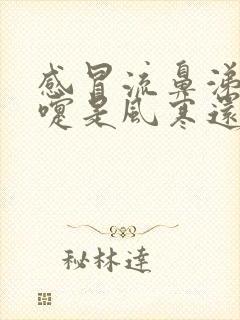 感冒流鼻涕
嚏是風寒還
秘林達